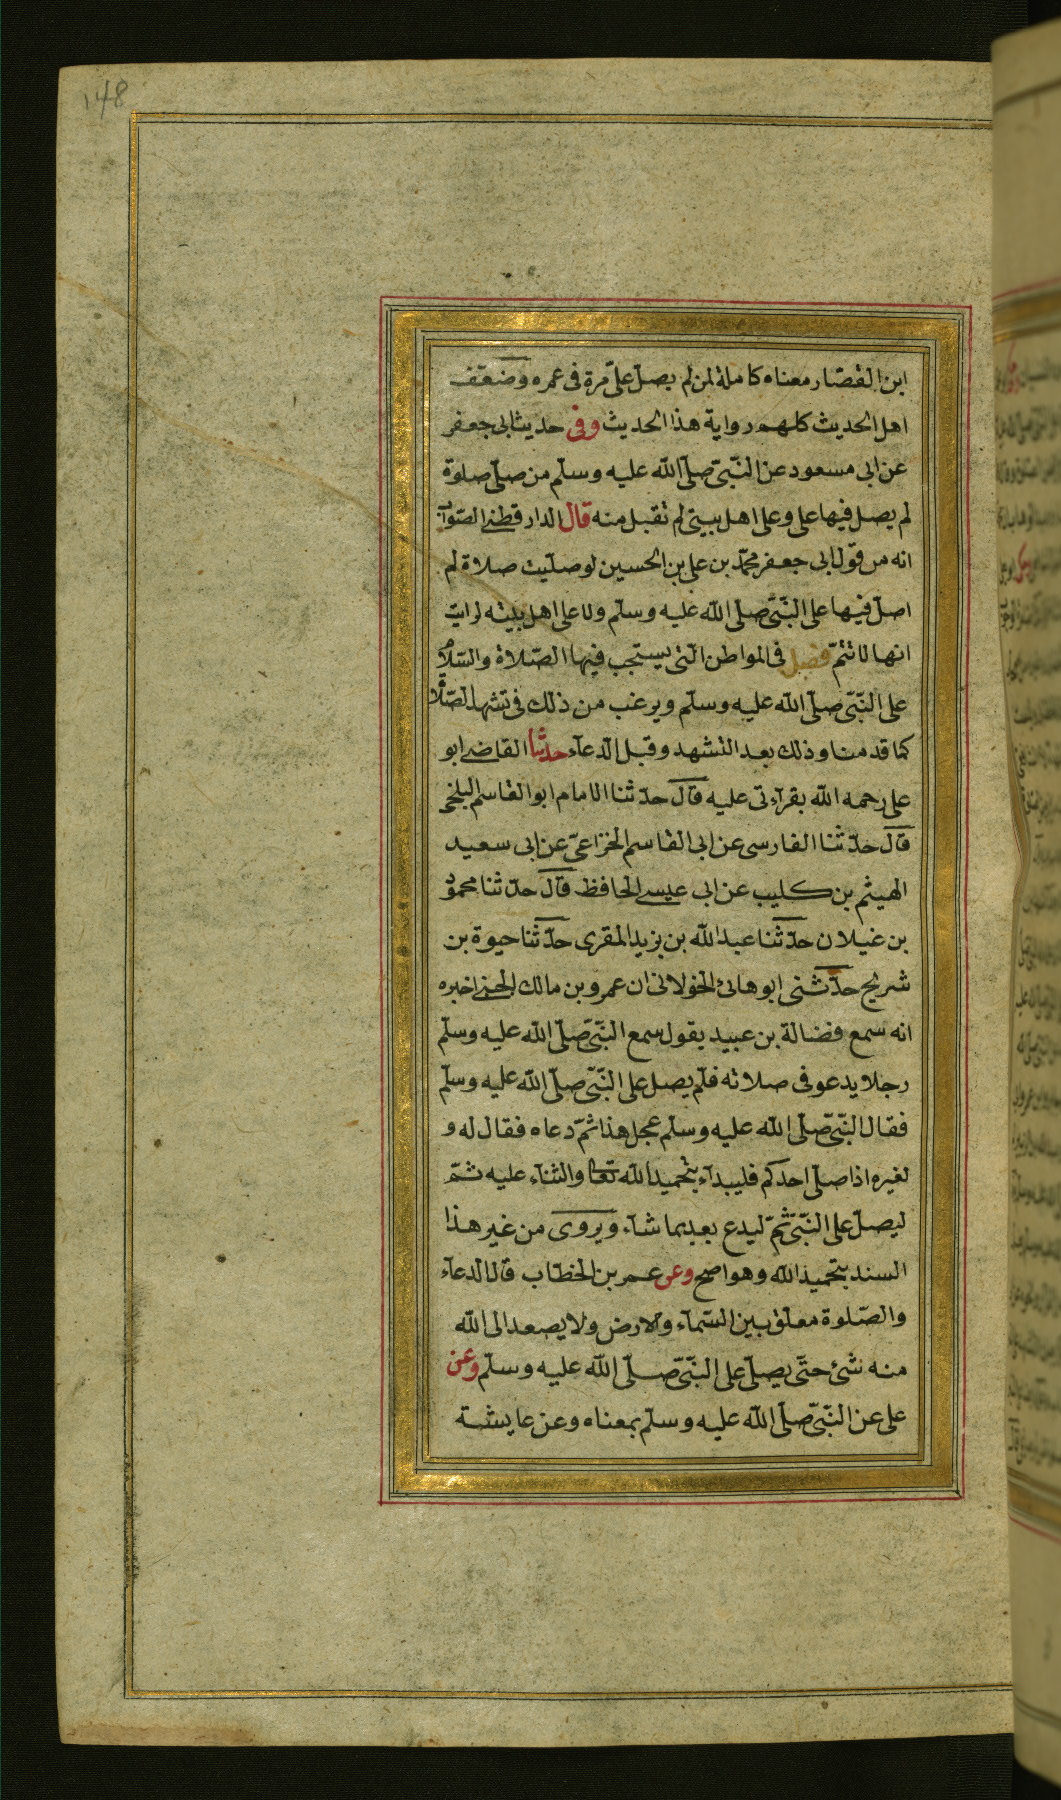 148
ابن القصار معناه كاملة لمن لم يصل علىّ مرة فى عمره وضعف
اهل الحديث كلهم رواية هذا الحديث وفى حديث ابى جعفر
عن ابى مسعود عن النّبىّ صلّى اللّه عليه وسلّم من صلّى صلوة
لم يصل فيها على وعلى اهل بيتى لم تقبل منه قال الدارقطنى الصّواب
انه من قول ابى جعفر محمّد بن على بن الحسين لو صلّيت صلاة لم
اصلّ فيها على النّبىّ صلى اللّه عليه وسلّم ولا على اهل بيته لرايت
انها لا تتمّ فصل فى المواطن التى يستحب فيها الصّلاة والسّلام
على النّبىّ صلّى اللّه عليه وسلّم ويرغب من ذلك فى تشهد الصّلاة
كما قدمنا وذلك بعد التشهد وقبل الدعآء حدّثنا القاضى ابو
على رحمه اللّه بقرآءتى عليه قال حدّثنا الامام ابو القاسم البلخى
قال حدّثنا الفارسى عن ابى القاسم الخزاعىّ عن ابى سعيد
الهيثم بن كليب عن ابى عيسى الحافظ قال حدّثنا محمود
بن غيلان حدّثنا عبد اللّه بن يزيد المقرى حدّثنا حيوة بن
شريح حدّثنى ابو هانئ الخولانى ان عمرو بن مالك الجنبى اخبره
انه سمع فضالة بن عبيد يقول سمع النّبىّ صلّى اللّه عليه وسلّم
رجلا يدعو فى صلاته فلم يصل على النّبىّ صلّى اللّه عليه وسلّم
فقال النّبىّ صلّى اللّه عليه وسلّم عجل هذا ثمّ دعاه فقال له و
لغيره اذا صلّى احدكم فليبدآء بتحميد اللّه تعالى والثنآء عليه ثمّ
ليصلّ على النّبىّ ثمّ ليدع بعد بما شآء ويروى من غير هذا
السند بتمجيد اللّه وهو اصح وعن عمر بن الخطاب قال الدعآء
والصّلوة معلق بين السّمآء والارض ولا يصعد الى اللّه
منه شئ حتّى يصلّى على النّبىّ صلّى اللّه عليه وسلّم وعن
على عن النّبىّ صلّى اللّه عليه وسلّم بمعناه وعن عايشة